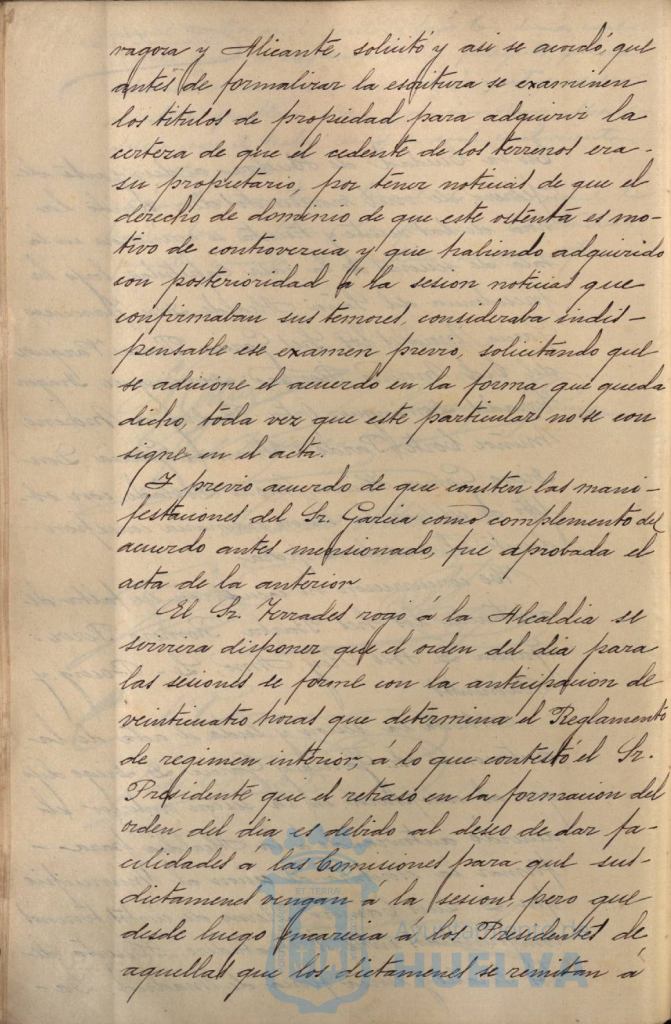 ragoza y Alicante, solicitó y asi se acordó, que
antes de formalizar la escritura se examinen
los titulos de propiedad para adquirir la
certeza de que el cedente de los terrenos era-
su propietario, por tener noticias de que el
derecho de dominio de que este ostenta es mo-
tivo de controvercia y que habiendo adquirido
con posterioridad á la sesion noticias que
confirmaban sus temores, consideraba indis-
pensable ese examen previo, solicitando que
se adicione el acuerdo en la forma que queda
dicho, toda vez que este particular no se con
signe en el acta.
Y previo acuerdo de que consten las mani-
festaciones del Sr. Garcia como complemento del
acuerdo antes mensionado, fué aprobada el
acta de la anterior
El Sr. Terrades rogó á la Alcaldia se
sirviera disponer que el orden del dia para
las sesiones se forme con la anticipacion de
veinticuatro horas que determina el Reglamento
de regimen interior; á lo que contestó el Sr.
Presidente que el retraso en la formacion del
orden del dia es debido al deseo de dar fa-
cilidades á las Comisiones para que sus-
dictamenes vengan á la sesion, pero que
desde luego encarecia á los Presidentes de
aquellas que los dictamenes se remitan á
ET TERRA
Ayuntamiento de
HUELVA